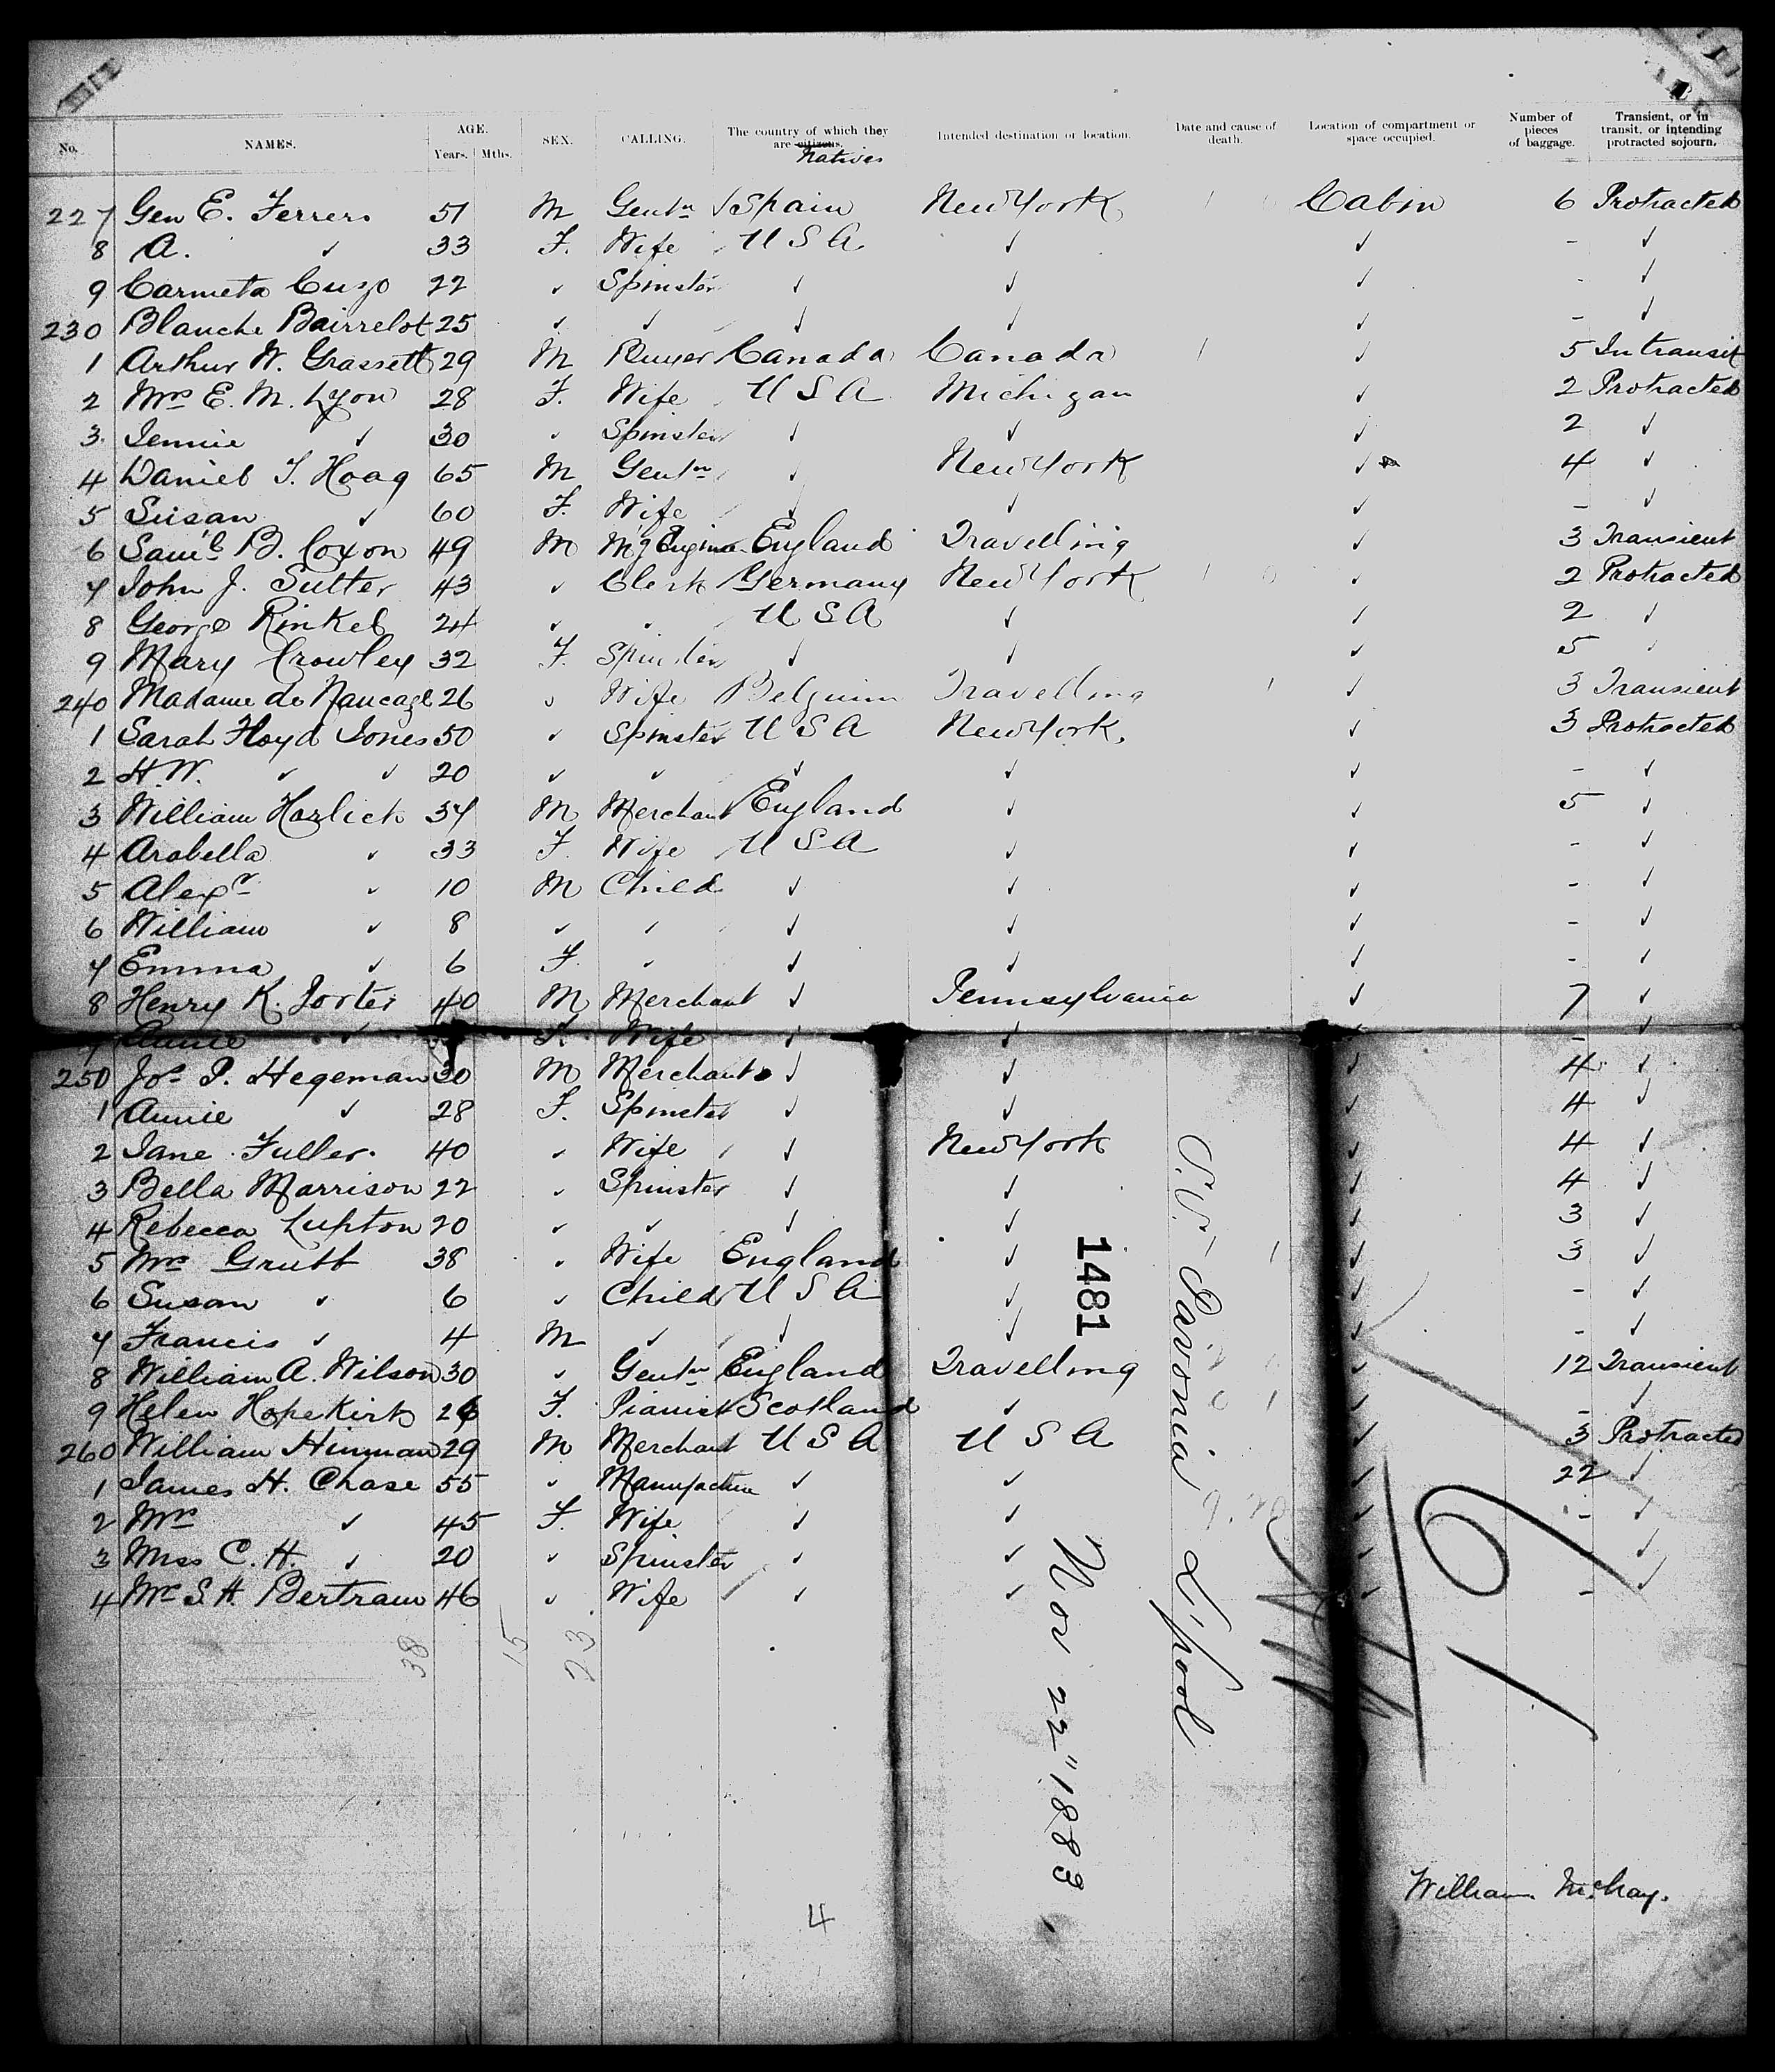 No. NAMES. AGE. Years. Mths. SEX. CALLING. The country of which they are citizens. Natives Intended destination or location. Date and cause of death. Location of compartment or space occupied. Number of pieces of baggage. Transient, or in transit, or intending protracted sojourn.
227 Gen E. Ferrers 51 M Gentn Spain New York Cabin 6 Protracted
8 A. ✓ 33 F. Wife U S A ✓ ✓ - ✓
9 Carmeta Cuzo 22 ✓ Spinster ✓ ✓ ✓ - ✓
230 Blanche Bairrelot 25 ✓ ✓ ✓ ✓ ✓ - ✓
1 Arthur W. Grassett 29 M Buyer Canada Canada ✓ 5 In transit
2 Mrs E. M. Lyon 28 F. Wife U S A Michigan ✓ 2 Protracted
3 Jennie ✓ 30 ✓ Spinster ✓ ✓ ✓ 2 ✓
4 Daniel T. Hoag 65 M Gentn ✓ New York ✓ 4 ✓
5 Susan ✓ 60 F. Wife ✓ ✓ ✓ - ✓
6 Saml B. Coxon 49 M Mg Engineer England Travelling ✓ 3 Transient
7 John J. Sutter 43 ✓ Clerk Germany New York ✓ 2 Protracted
8 George Rinkel 24 ✓ ✓ U S A ✓ ✓ 2 ✓
9 Mary Crowley 32 F. Spinster ✓ ✓ ✓ 5 ✓
240 Madame de 26 ✓ Wife Belguim Travelling ✓ 3 Transient
1 Sarah Floyd Jones 50 ✓ Spinster U S A New York ✓ 3 Protracted
2 H W. ✓ ✓ 20 ✓ ✓ ✓ ✓ ✓ - ✓
3 William Harlick 34 M Merchant England ✓ ✓ 5 ✓
4 Arabella ✓ 33 F. Wife U S A ✓ ✓ - ✓
5 Alexr ✓ 10 M Child ✓ ✓ ✓ - ✓
6 William ✓ 8 ✓ ✓ ✓ ✓ ✓ - ✓
7 Emma ✓ 6 F. ✓ ✓ ✓ ✓ - ✓
8 Henry K. Porter 40 M Merchant ✓ Pennsylvania ✓ 7 ✓
9 Annie ✓ F. Wife ✓ ✓ ✓ - ✓
250 Jos P. Hegeman 30 M Merchant ✓ ✓ ✓ 4 ✓
1 Annie ✓ 28 F. Spinster ✓ ✓ ✓ 4 ✓
2 Jane Fuller 40 ✓ Wife ✓ New York ✓ 4 ✓
3 Bella Marrison 22 ✓ Spinster ✓ ✓ ✓ 4 ✓
4 Rebecca Lupton 20 ✓ ✓ ✓ ✓ ✓ 3 ✓
5 Mrs Grubb 38 ✓ Wife England ✓ ✓ 3 ✓
6 Susan ✓ 6 ✓ Child U S A ✓ ✓ - ✓
7 Francis ✓ 4 M ✓ ✓ ✓ ✓ - ✓
8 William A. Wilson 30 ✓ Gentn England Travelling ✓ 12 Transient
9 Helen Hopekirk 26 F. Pianist Scotland ✓ ✓ - ✓
260 William Hinman 29 M Merchant U S A U S A ✓ 3 Protracted
1 James H. Chase 55 ✓ Manufacture ✓ ✓ ✓ 22 ✓
2 Mrs ✓ 45 F. Wife ✓ ✓ ✓ - ✓
3 Miss C. H. ✓ 20 ✓ Spinster ✓ ✓ ✓ - ✓
4 Mrs S. H. Bertram 46 ✓ Wife ✓ ✓ ✓ - ✓
38 15 23
S.S. Pavonia L'pool
1481
Nov 22" 1883
19
William McKay.
4